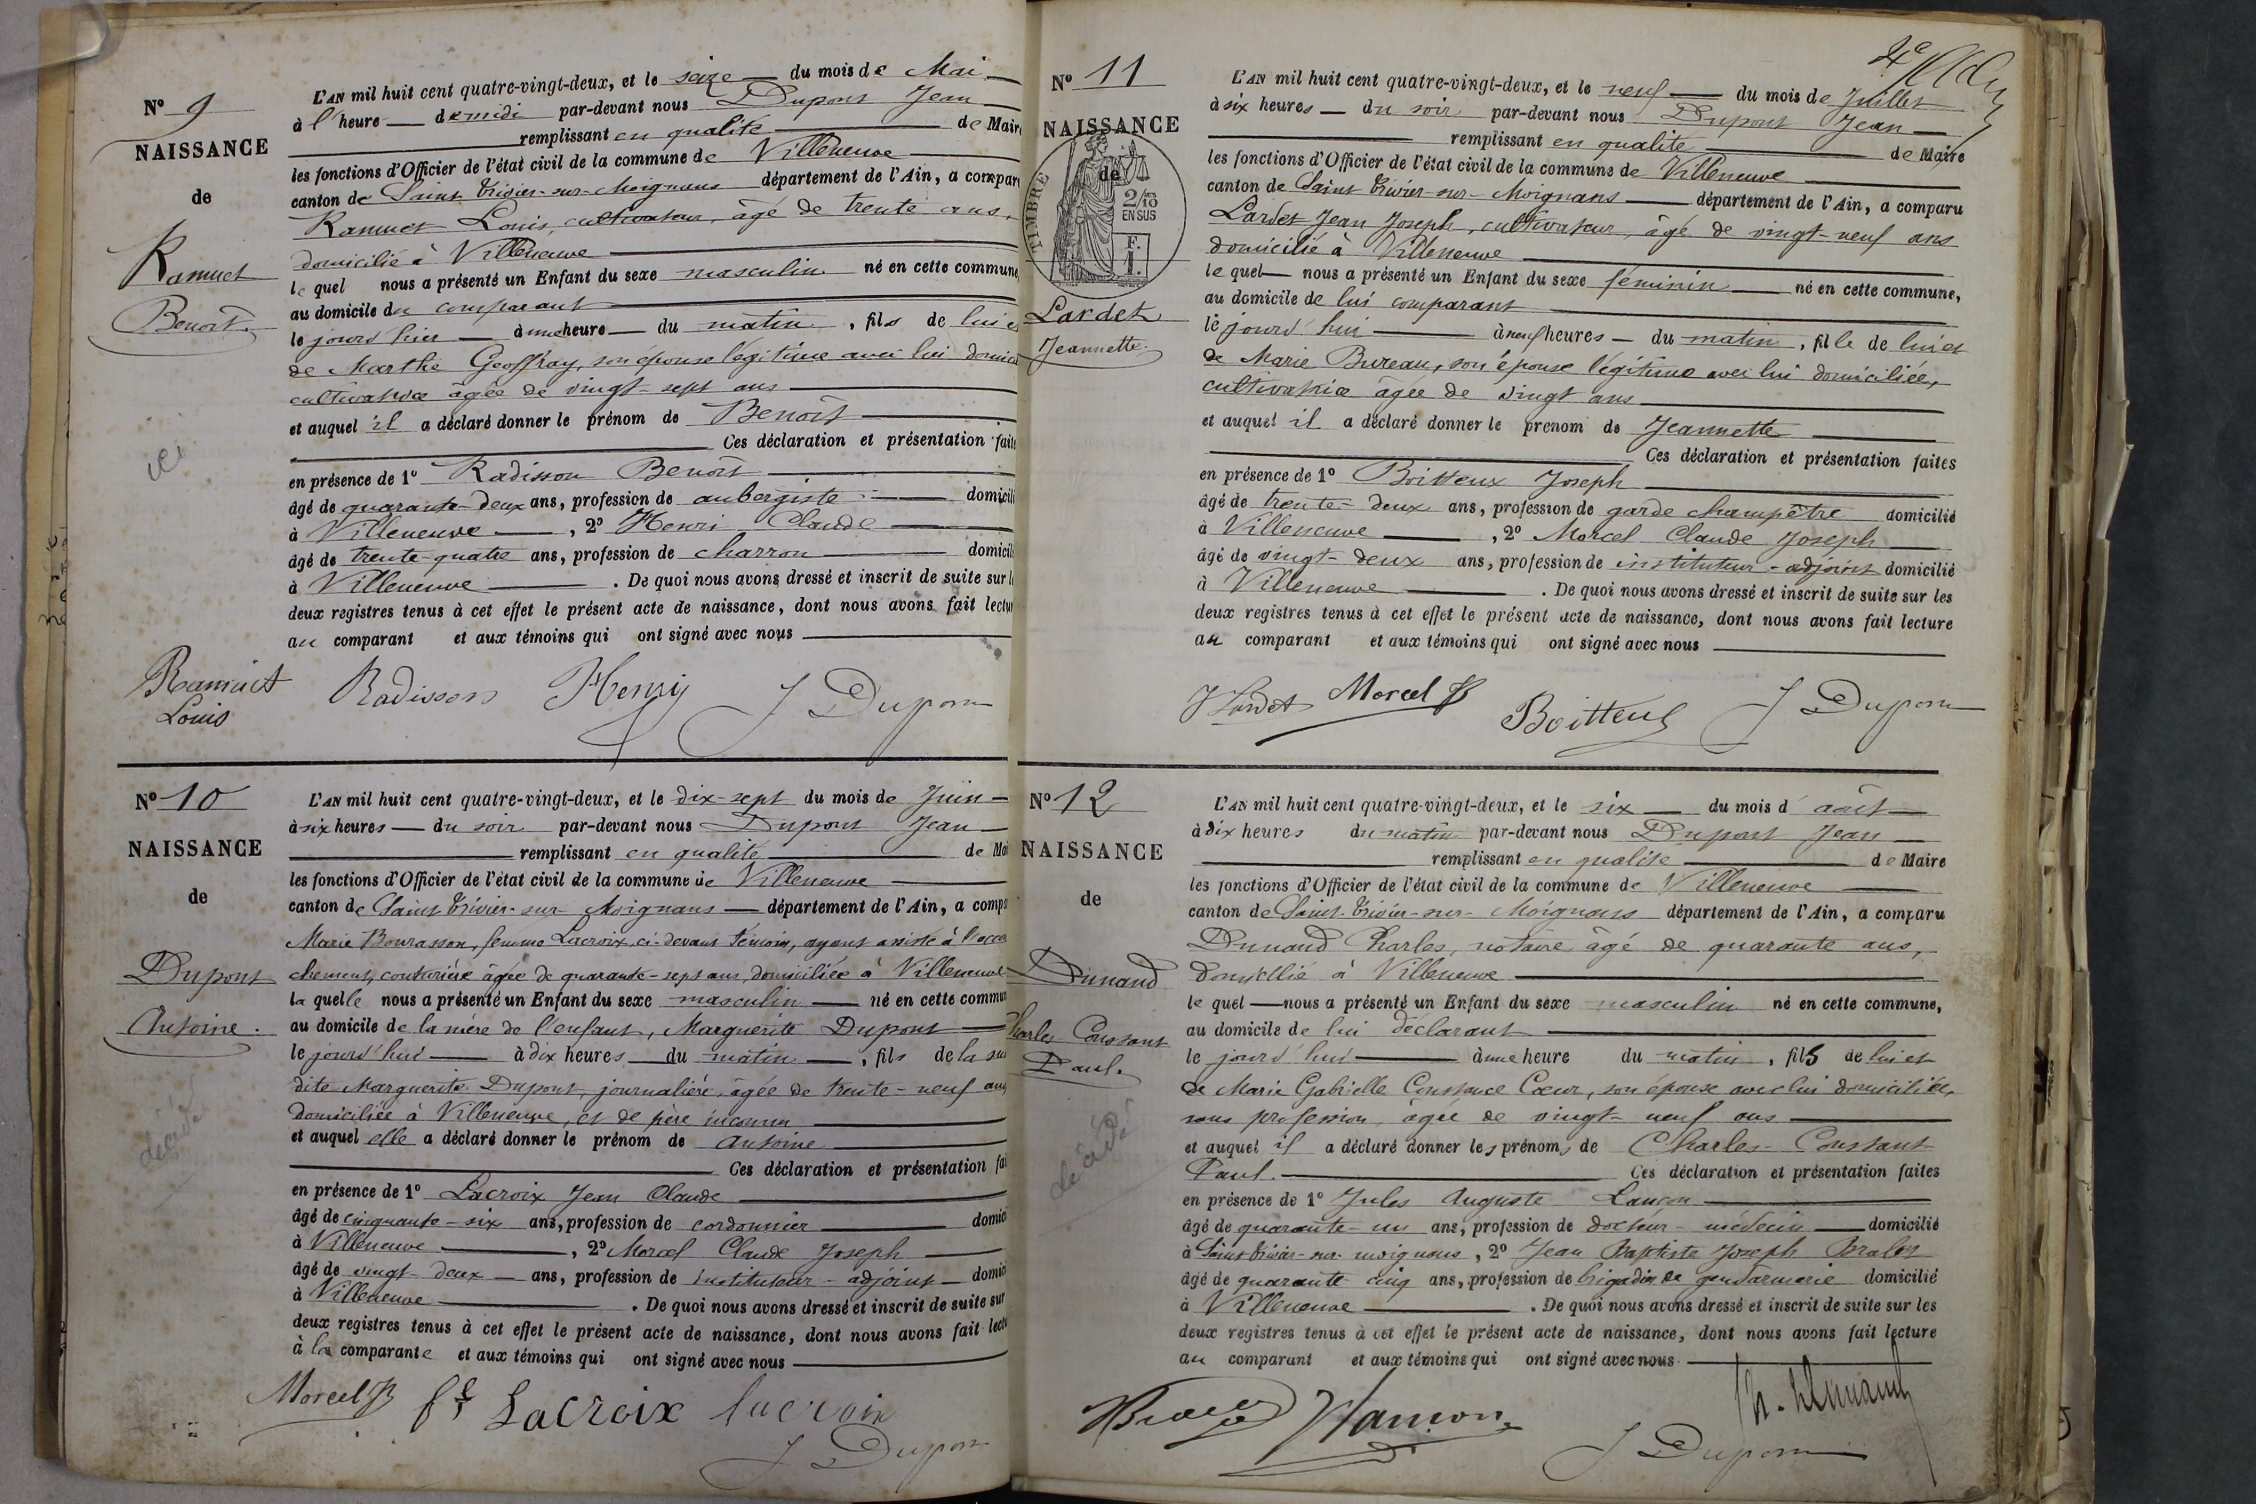 N° 9
NAISSANCE
de
Ramuet
Benoit.
L'AN mil huit cent quatre-vingt-deux, et le seize du mois de Mai
à l'heure de midi par-devant nous Dupont Jean
remplissant en qualité de Maire
les fonctions d'Officier de l'état civil de la commune de Villeneuve
canton de Saint Trivier-sur-Moignans département de l'Ain, a compar
Ramuet Louis, cultivateur, âgé de trente ans,
domicilié à Villeneuve
le quel nous a présenté un Enfant du sexe masculin né en cette commune,
au domicile du comparant
le jour d'hier à une heure du matin, fils de lui et
de Marthe Geoffray, son épouse légitime avec lui domici
cultivatrice âgée de vingt-sept ans
et auquel il a déclaré donner le prénom de Benoit
Ces déclaration et présentation faite
en présence de 1° Radisson Benoit
âgé de quarante-deux ans, profession de aubergiste domicili
à Villeneuve, 2° Henri Claude
âgé de trente-quatre ans, profession de charron domicili
à Villeneuve. De quoi nous avons dressé et inscrit de suite sur l
deux registres tenus à cet effet le présent acte de naissance, dont nous avons fait lectu
au comparant et aux témoins qui ont signé avec nous
Ramuet Louis Radisson Henry J Dupont
N° 10
NAISSANCE
de
Dupont
Antoine.
décédé
L'AN mil huit cent quatre-vingt-deux, et le dix-sept du mois de Juin
à six heures du soir par-devant nous Dupont Jean
remplissant en qualité de Mai
les fonctions d'Officier de l'état civil de la commune de Villeneuve
canton de Saint Trivier-sur-Moignans département de l'Ain, a compa
Marie Bourasson, femme Lacroix, ci-devant témoin, ayant assisté à l'accou
chement, couturière âgée de quarante-sept ans, domiciliée à Villeneuve
la quelle nous a présenté un Enfant du sexe masculin né en cette commun
au domicile de la mère de l'enfant, Marguerite Dupont
le jourd'hui à dix heures du matin, fils de la sus
dite Marguerite Dupont, journalière, âgée de trente-neuf ans
domiciliée à Villeneuve, et de père inconnu
et auquel elle a déclaré donner le prénom de Antoine
Ces déclaration et présentation fai
en présence de 1° Lacroix Jean Claude
âgé de cinquante-six ans, profession de cordonnier domici
à Villeneuve, 2° Morcel Claude Joseph
âgé de vingt-deux ans, profession de instituteur-adjoint domici
à Villeneuve. De quoi nous avons dressé et inscrit de suite sur
deux registres tenus à cet effet le présent acte de naissance, dont nous avons fait lectu
à la comparante et aux témoins qui ont signé avec nous
Morcel fe Lacroix lacroix
J Dupont
N° 11
NAISSANCE
de
TIMBRE
2/10
EN SUS
F.
1.
Lardet
Jeannette.
L'AN mil huit cent quatre-vingt-deux, et le neuf du mois de Juillet
à six heures du soir par-devant nous Dupont Jean
remplissant en qualité de Maire
les fonctions d'Officier de l'état civil de la commune de Villeneuve
canton de Saint Trivier-sur-Moignans département de l'Ain, a comparu
Lardet Jean Joseph, cultivateur, âgé de vingt-neuf ans
domicilié à Villeneuve
le quel nous a présenté un Enfant du sexe féminin né en cette commune,
au domicile de lui comparant
le jourd'hui à neuf heures du matin, fille de lui et
de Marie Bureau, son épouse légitime avec lui domiciliée,
cultivatrice âgée de vingt ans
et auquel il a déclaré donner le prénom de Jeannette
Ces déclaration et présentation faites
en présence de 1° Boitteux Joseph
âgé de trente-deux ans, profession de garde champêtre domicilié
à Villeneuve, 2° Morcel Claude Joseph
âgé de vingt-deux ans, profession de instituteur-adjoint domicilié
à Villeneuve. De quoi nous avons dressé et inscrit de suite sur les
deux registres tenus à cet effet le présent acte de naissance, dont nous avons fait lecture
au comparant et aux témoins qui ont signé avec nous
J Lardet Morcel Boitteux J Dupont
N° 12
NAISSANCE
de
Dunand
Charles Constant
Paul.
décédé
L'AN mil huit cent quatre-vingt-deux, et le six du mois d'août
à dix heures du matin par-devant nous Dupont Jean
remplissant en qualité de Maire
les fonctions d'Officier de l'état civil de la commune de Villeneuve
canton de Saint-Trivier-sur-Moignans département de l'Ain, a comparu
Dunand Charles, notaire âgé de quarante ans,
domicilié à Villeneuve
le quel nous a présenté un Enfant du sexe masculin né en cette commune,
au domicile de lui déclarant
le jourd'hui à une heure du matin, fils de lui et
de Marie Gabrielle Constance Cœur, son épouse avec lui domiciliée,
sans profession, âgée de vingt-neuf ans
et auquel il a déclaré donner les prénoms de Charles Constant
Paul. Ces déclaration et présentation faites
en présence de 1° Jules Auguste Lançon
âgé de quarante-un ans, profession de docteur-médecin domicilié
à Saint Trivier-sur-moignans, 2° Jean Baptiste Joseph
âgé de quarante cinq ans, profession de brigadier de gendarmerie domicilié
à Villeneuve. De quoi nous avons dressé et inscrit de suite sur les
deux registres tenus à cet effet le présent acte de naissance, dont nous avons fait lecture
au comparant et aux témoins qui ont signé avec nous
Lançon Ch. Dunand
J Dupont